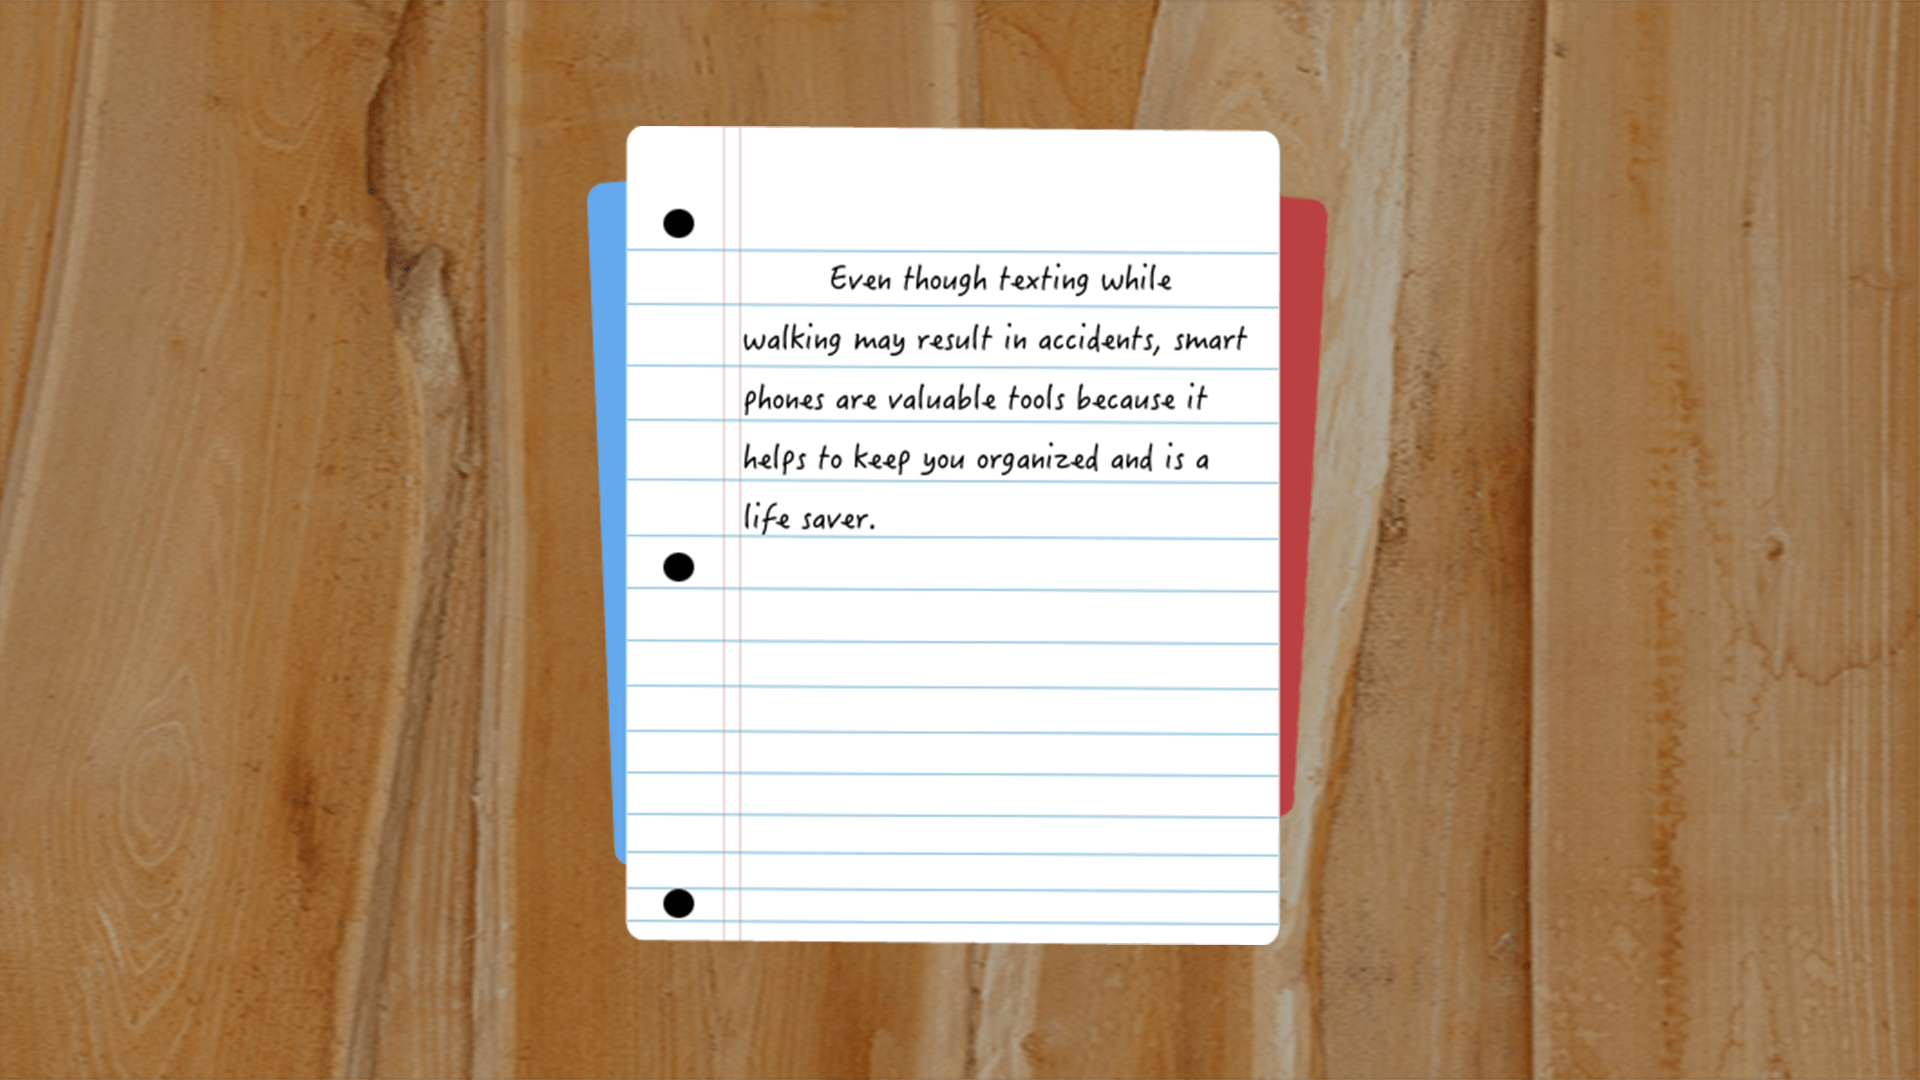 Even though texting while
walking may result in accidents, smart
phones are valuable tools because it
helps to keep you organized and is a
life saver.